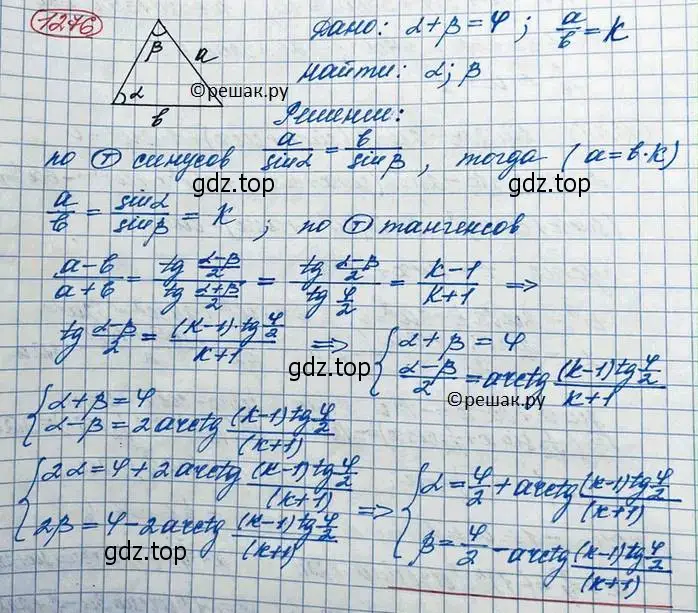 1276
Дано: α+β=φ; a/b=K
Найти: α; β
β a
α
b
©решак.ру
Решение:
по Ⓣ синусов a/sinα = b/sinβ, тогда (a=b·K)
gdz.top gdz.top
a/b = sinα/sinβ = K; по Ⓣ тангенсов
(a-b)/(a+b) = tg (α-β)/2 / tg (α+β)/2 = tg (α-β)/2 / tg φ/2 = (K-1)/(K+1) ⇒
gdz.top gdz.top
tg (α-β)/2 = (K-1)·tg φ/2 / (K+1) ⇒ { α+β=φ
(α-β)/2 = arctg (K-1)tg φ/2 / (K+1)
gdz.top
©решак.ру
{ α+β=φ
α-β = 2arctg (K-1)tg φ/2 / (K+1)
gdz.top gdz.top
{ 2α=φ+2arctg (K-1)tg φ/2 / (K+1)
2β=φ-2arctg (K-1)tg φ/2 / (K+1)
⇒ { α=φ/2+arctg (K-1)tg φ/2 / (K+1)
β=φ/2-arctg (K-1)tg φ/2 / (K+1)
gdz.top gdz.top